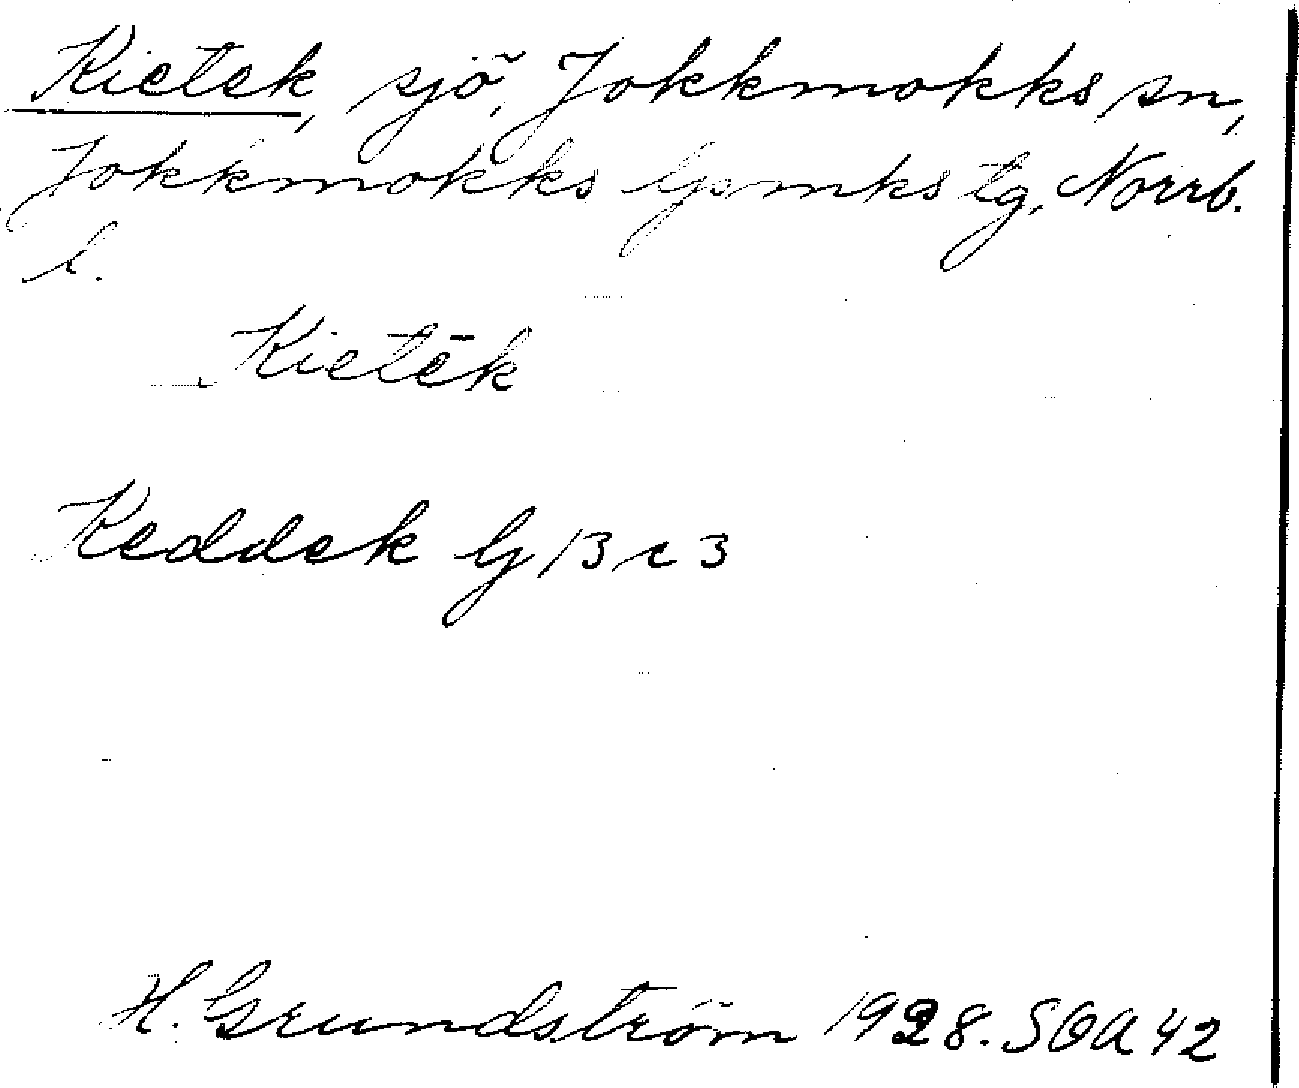 Kietek, sjö, Jokkmokks sn,
Jokkmokks lpmks tg, Norrb.
l.
Kietēk
Keddek G 13 c 3
H. Grundström 1928. SOA 42